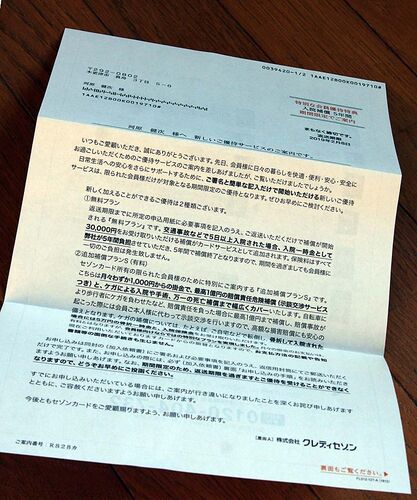 0039420-1/2 1AAE12B00X0019710#
〒292-0802
木更津市 真舟 3丁目 5-6
河原 健次 様
1AAE12B00X0019710#
特別な会員優待特典
入院補償 5年間
期間限定でご案内
まもなく締切です。
返送期限
2019年2月8日
河原 健次 様へ 新しいご優待サービスのご案内です。
いつもご愛顧いただき、誠にありがとうございます。先日、会員様に日々の暮らしを快適・便利・安心・安全に
お過ごしいただくためのご優待サービスのご案内を差しあげましたが、ご覧いただけましたでしょうか。
日常生活への安心をさらにサポートするために、ご署名と簡単な記入だけで開始いただける新しいご優待
サービスは、限られた会員様だけが対象となる期間限定のご優待となります。ぜひお早めにご検討ください。
新しく加えることができるご優待は2種類ございます。
①無料プラン
返送期限までに所定の申込用紙に必要事項をご記入のうえ、ご返送いただくだけで補償が開始
される「無料プラン」です。交通事故などで5日以上入院された場合、入院一時金として
30,000円をお受け取りいただける補償がカードサービスとして追加されます。保険料はすべて
弊社が5年間負担させていただき、5年間で補償終了となりますので、期間を過ぎましても会員様に
一切のご負担は発生致しません。
②追加補償プランS(有料)
セゾンカード所有の限られた会員様のために特別にご案内する「追加補償プランS」です。
こちらは月々わずか1,000円からの掛金で、最高1億円の賠償責任危険補償(示談交渉サービス
つき)と、ケガによる入院や手術、万一の死亡補償まで幅広くカバーいたします。自転車に
より歩行者にケガを負わせたなど、賠償責任を負った場合に最高1億円まで補償し、賠償事故が
起こった際には会員ご本人様に代わって示談交渉を行いますので、高額な損害賠償にも安心の
備えとなります。ケガの補償については、たとえば、ご自宅などで転倒し、骨折して入院された
お申し込みは同封の〈加入依頼書〉にご署名および必要事項を記入のうえ、返信用封筒にてご返送いただく
だけで完了です。
なりますので、どうぞお早めにご投函ください。
すでにお申し込みいただいている場合には、ご案内が行き違いになりましたことを深くお詫び申しあげます
とともに、ご容赦くださいますようお願い申しあげます。
今後ともセゾンカードをご愛顧賜りますよう、お願い申しあげます。
[差出人] 株式会社 クレディセゾン
ご案内番号:RS28カ
裏面もご覧ください。